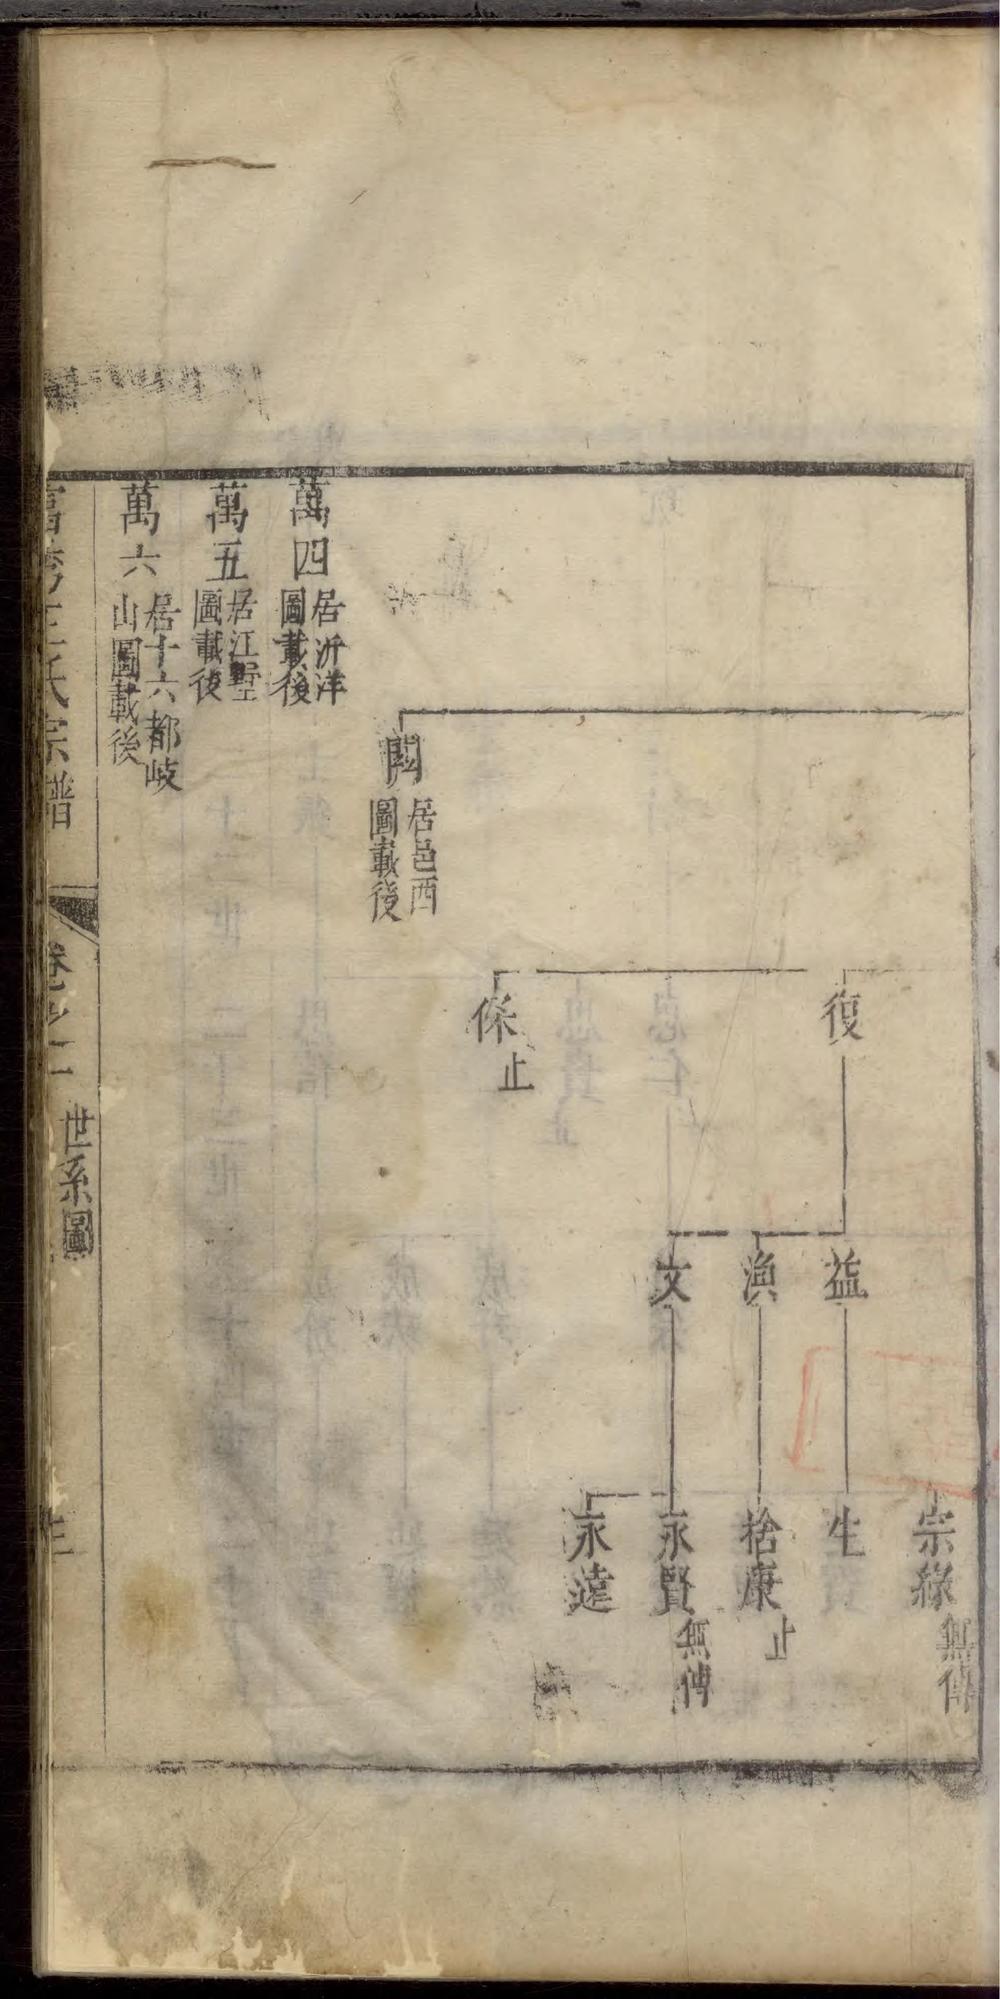 宗緣 無傳
復
益
生
漁
捨康 止
文
永賢 無傳
永遠
保 止
閎 居邑西
圖載後
萬四 居沂洋
圖載後
萬五 居江墅
圖載後
萬六 居十六都岐
山圖載後
王氏宗譜
卷之 世系圖